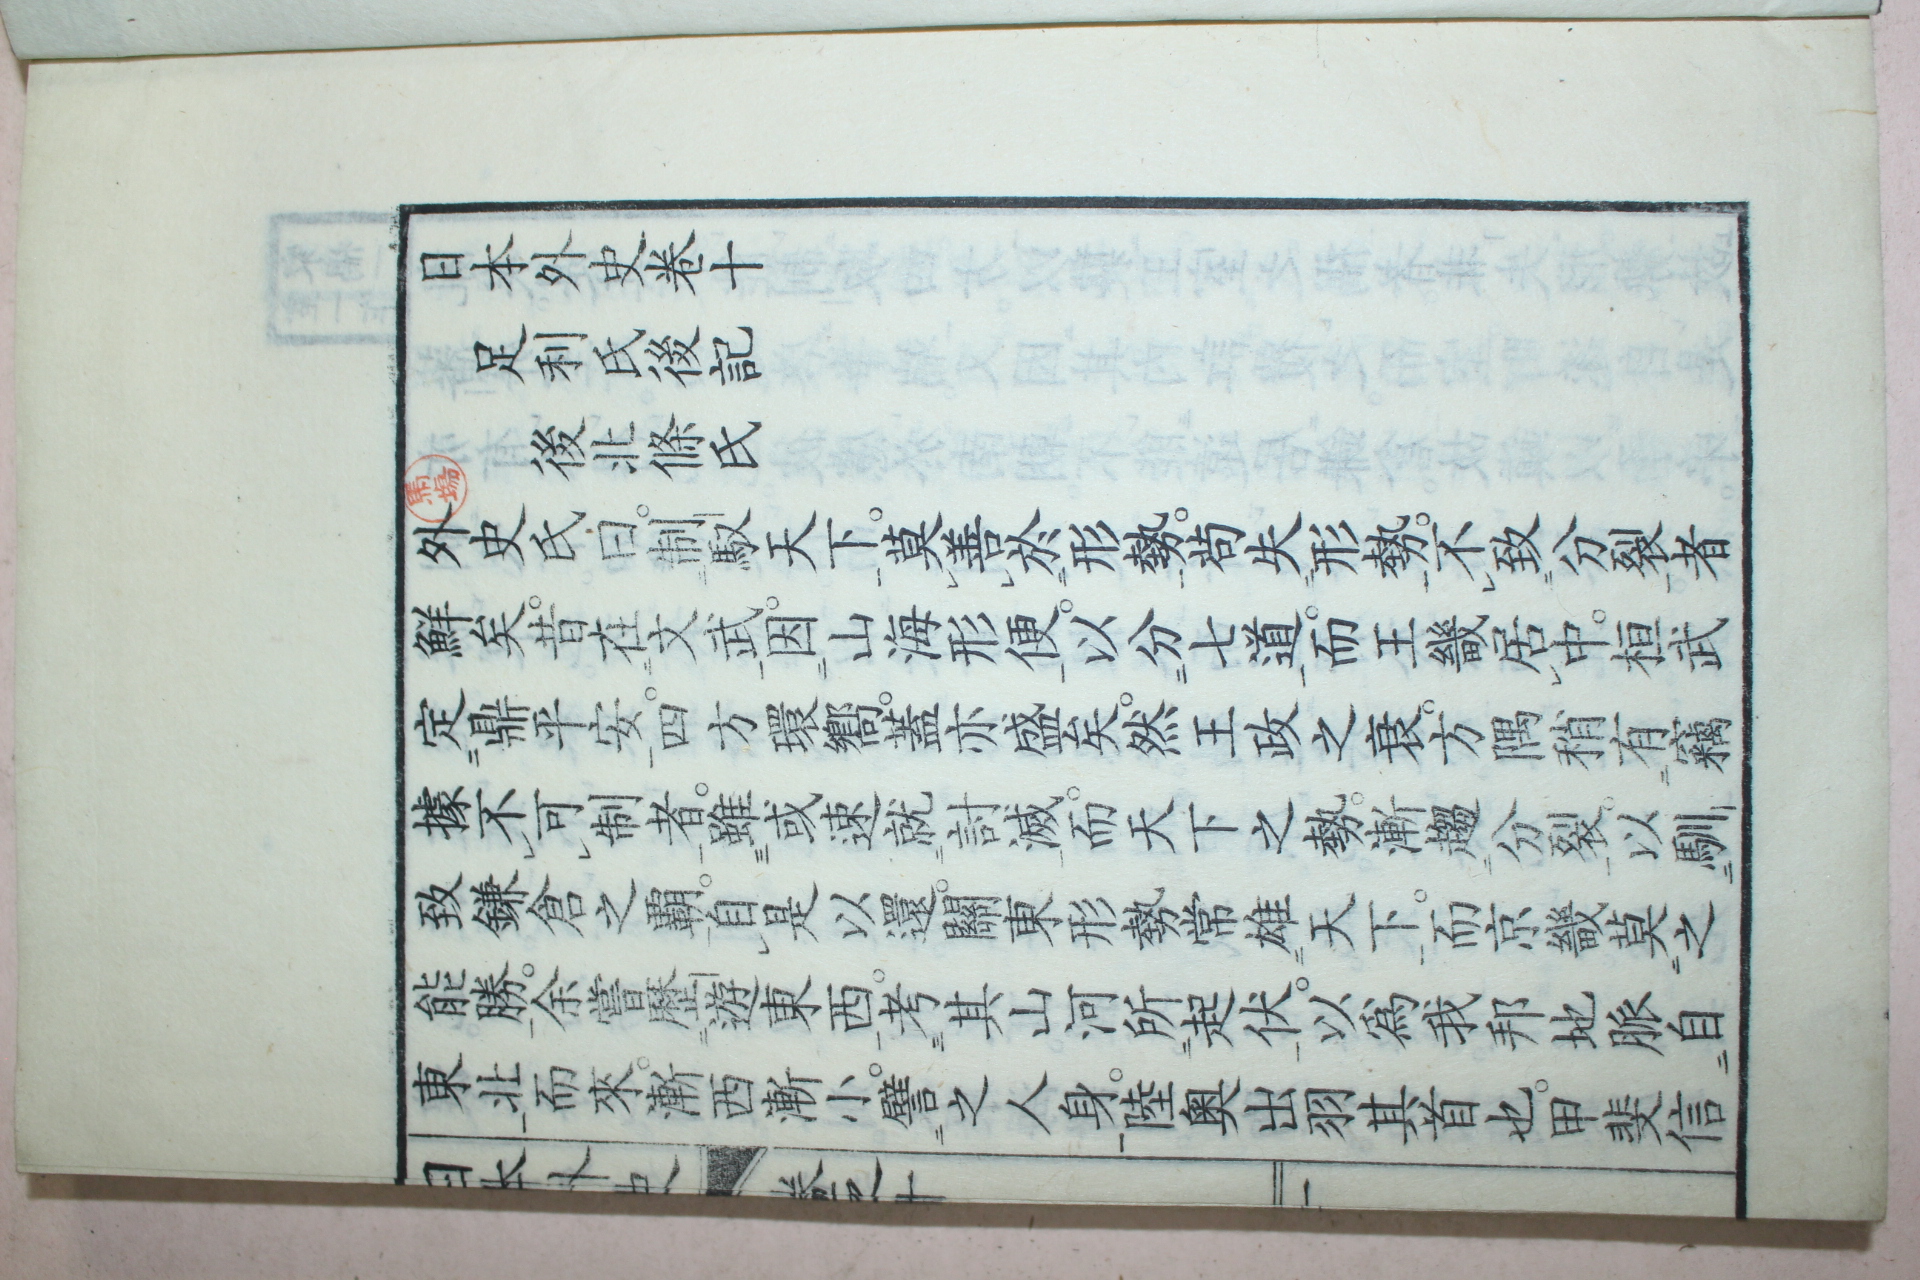 日本外史卷十
足利氏後記
後北條氏
外史氏曰。制馭天下。莫善於形勢。苟失形勢。不致分裂者
鮮矣。昔在文武。因山海形便。以分七道。而王畿居中。桓武
定鼎平安。四方環嚮。蓋亦盛矣。然王政之衰。方隅稍有竊
據不可制者。雖或速就討滅。而天下之勢。漸趨分裂。以馴
致鎌倉之霸。自是以還。關東形勢常雄天下。而京畿莫之
能勝。余嘗歷游東西。考其山河所起伏。以為我邦地脈自
東北而來。漸西漸小。譬之人身。陸奧出羽其首也。甲斐信
日本外史 卷之十 一
馬場